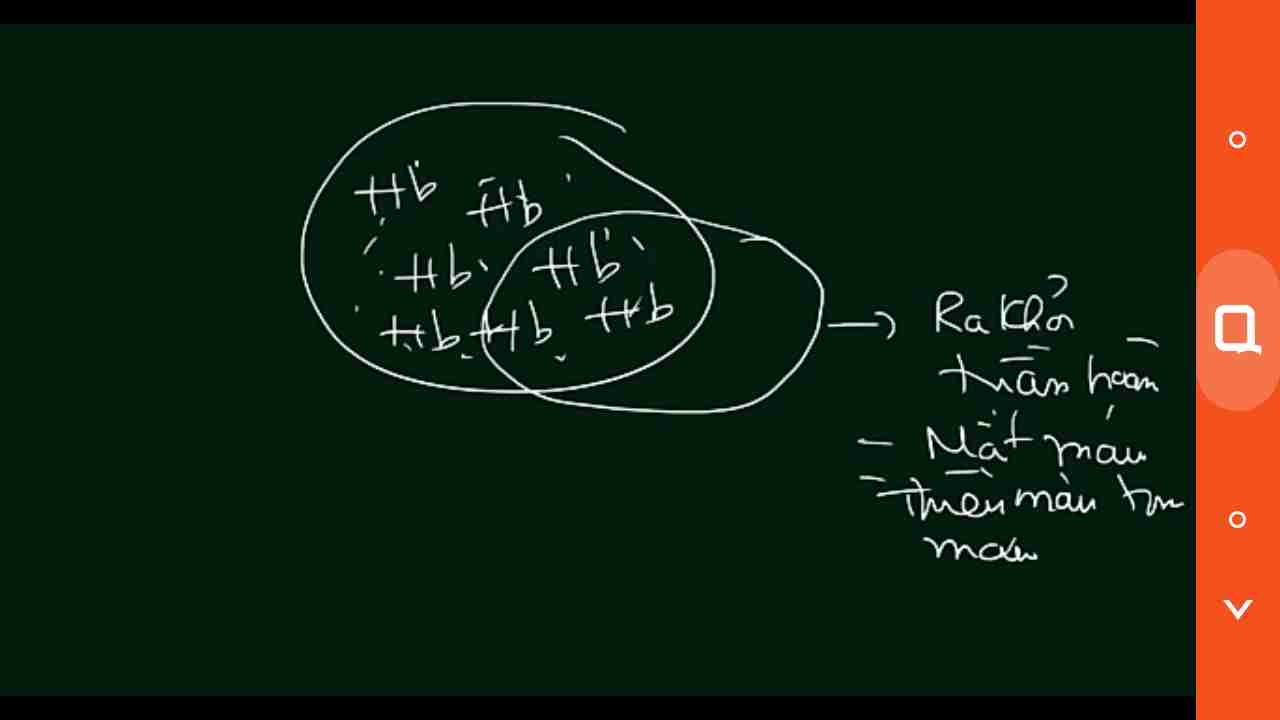 Hb Hb
Hb Hb
Hb Hb Hb
→ Ra khỏi
tuần hoàn
- Mất máu
- Thiếu máu tan
máu